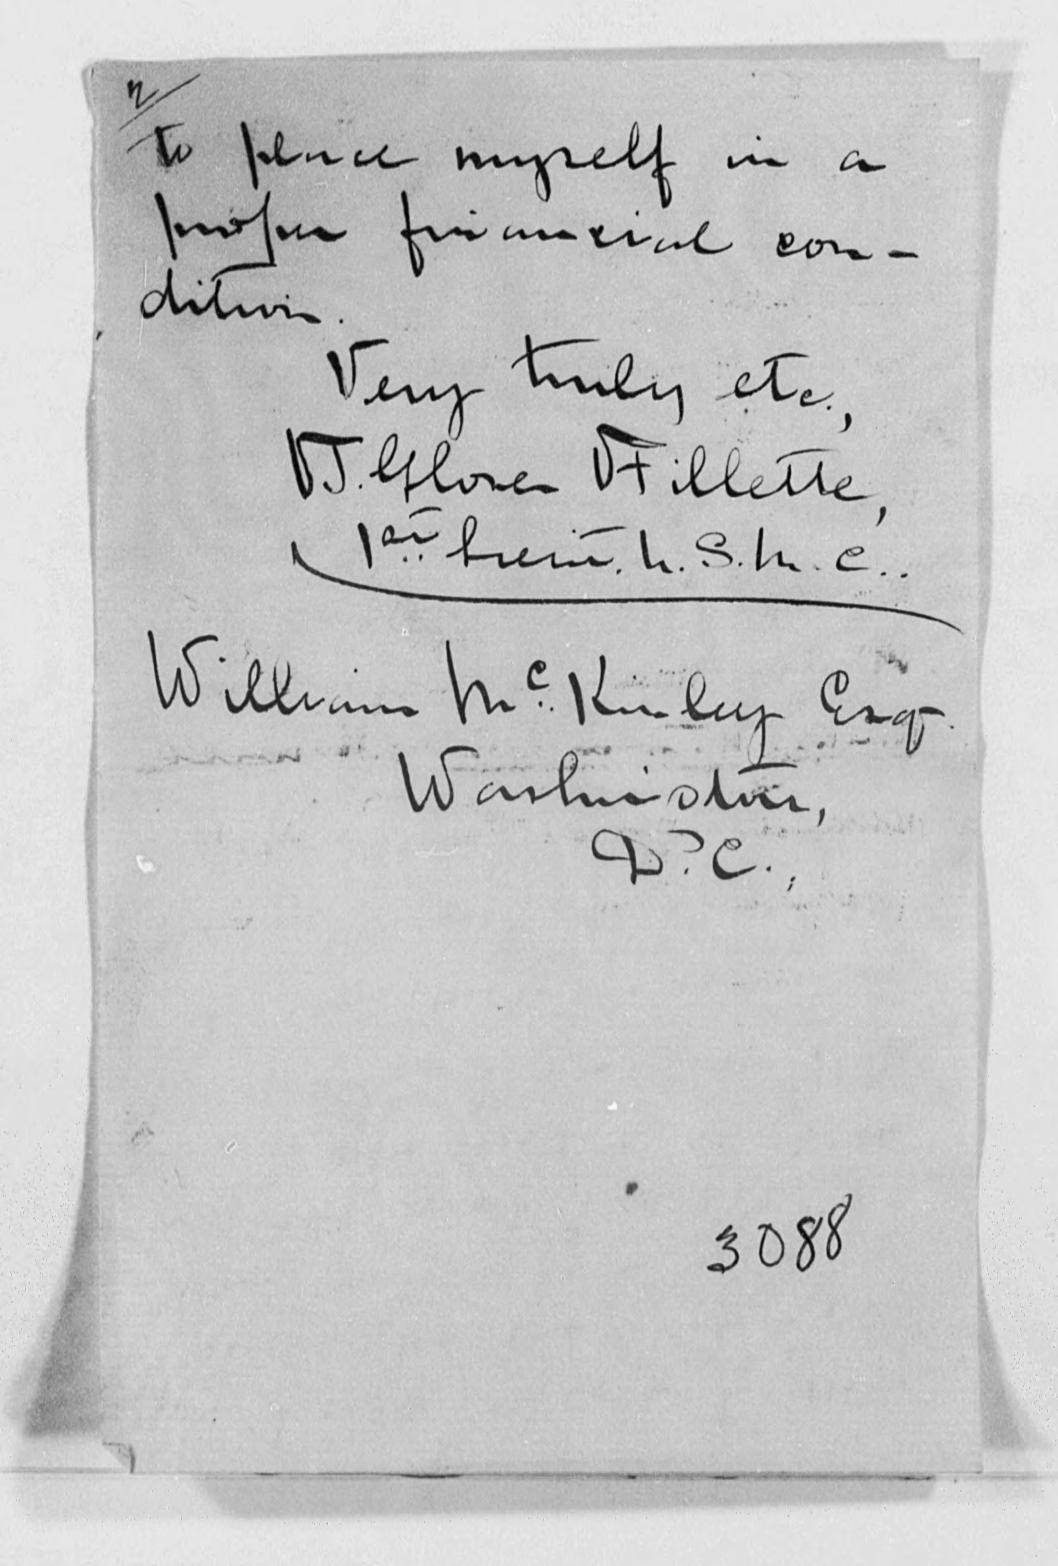 2/
to place myself in a
proper financial con-
dition.
Very truly etc.,
T. Glover Fillette,
1st Lieut. U.S.M.C..
William McKinley Esq.
Washington,
D.C.,
3088